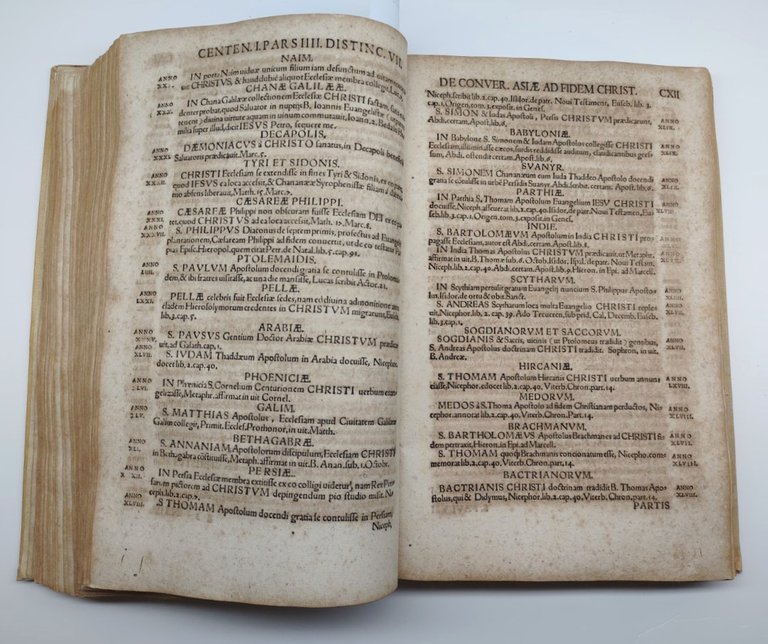 CENTEN. I. PARS IIII. DISTINC. VII.
NAIM.
ANNO
XXXI.
IN porta Naim viduæ unicum filium iam defunctum ad vitam
uit CHRISTVS, & haud dubiè aliquot Ecclesiæ membra collegit, Luc.
CHANÆ GALILÆÆ.
IN Chana Galilææ collectionem Ecclesiæ CHRISTI factam,
denter probat, quod Saluator in nuptijs B. Ioannis Euangelistæ
tenet) diuina virtute aquam in vinum commutauit, Ioann. 2.
milia super illud, dicit IESVS Petro, sequere me.
DECAPOLIS.
ANNO
XXXI.
DÆMONIACVS à CHRISTO sanatus, in Decapoli beneficia
Saluatoris prædicauit, Marc. 5.
TYRI ET SIDONIS.
ANNO
CHRISTI Ecclesiam se extendisse in fines Tyri & Sidonis, ex eo
quod IESVS ea loca accesserit, & Chananææ Syrophenissæ filiam à
mio absens liberauit, Math. 15. Marc. 7.
CÆSAREÆ PHILIPPI.
ANNO
CÆSAREÆ Philippi non obscuram fuisse Ecclesiam DEI
tet, quod CHRISTVS ad ea loca accessit, Math. 15. Marc. 8.
ANNO
S. PHILIPPVS Diaconus de septem primis, profectus ad Euangelij
plantationem, Cæsaream Philippi ad fidem conuertit, ut de eo testatur
pus Episc. Hieropol. quem citat Petr. de Natal. lib. 5. cap. 91.
PTOLEMAIDIS.
ANNO
LIIII.
S. PAVLVM Apostolum docendi gratia se contulisse in Ptolomaidem,
& ibi fratres uisitasse, ac una die mansisse, Lucas scribit Actor. 21.
PELLÆ.
ANNO
LXXI.
PELLÆ celebris fuit Ecclesiæ sedes, nam ex diuina admonitione ante
eladem Hierosolymorum credentes in CHRISTVM migrarunt, Euseb.
lib. 3. cap. 5.
ARABIÆ.
ANNO
S. PAVSVS Gentium Doctor Arabiæ CHRISTVM prædicauit,
ad Galath. cap. 1.
ANNO
XLVII.
S. IVDAM Thaddæum Apostolum in Arabia docuisse, Nicephor.
docet lib. 2. cap. 40.
PHOENICIÆ.
ANNO
XLVI.
IN Phœnicia S. Cornelium Centurionem CHRISTI verbum euangelizasse,
Metaphr. affirmat in uit Cornel.
GALIM.
ANNO
XLV.
S. MATTHIAS Apostolus, Ecclesiam apud Ciuitatem Galim
Galim collegit, Primit. Eccles. Prothonor, in uit. Matth.
BETHAGABRÆ.
ANNO
XLI.
S. ANNANIAM Apostolorum discipulum, Ecclesiam CHRISTI
in Bethagabra constituisse, Metaph. affirmat in uit. B. Anan. sub 1. Octobr.
PERSIÆ.
ANNO
IN Persia Ecclesiæ membra extitisse ex eo colligi uidetur, nam Rex Persarum
pictorem ad CHRISTVM depingendum pio studio misit.
lib. 2. cap. 7.
ANNO
XLVIII.
S. THOMAM Apostolum docendi gratia se contulisse in Persiam,
Niceph,
DE CONVER. ASIÆ AD FIDEM CHRIST. CXII
Niceph. scribit lib. 2. cap. 40. Isidor. de patr. Noui Testament, Euseb. lib. 3.
cap. 1. Origen. tom. 3. exposit. in Genes.
S. SIMON & Iudas Apostoli, Persis CHRISTVM prædicarunt,
Abdi. certam. Apost. lib. 6.
ANNO
XLIX.
BABYLONIÆ.
IN Babylone S. Simonem & Iudam Apostolos collegisse CHRISTI
Ecclesiam, illuminasse cæcos, surdis reddidisse auditum, claudicantibus gressum,
Abdi. ostendit certam. Apost. lib. 6.
ANNO
XLIX.
SVANYR.
S. SIMONEM Chananæum cum Iuda Thaddeo Apostolo docendi
gratia se contulisse in urbē Persidis Suanyr, Abdi. scribit certam. Apost. lib. 6.
ANNO
XLIX.
PARTHIÆ.
IN Parthia S. Thomam Apostolum Euangelium IESV CHRISTI
docuisse, Niceph. asserit lib. 2. cap. 40. Isidor. de patr. Noui Testament, Euseb.
lib. 3. cap. 1. Origen. tom. 3. exposit. in Genes.
ANNO
INDIE.
S. BARTOLOMÆVM Apostolum in India CHRISTI propagasse
Ecclesiam, autor est Abdi. certam. Apost. lib. 8.
ANNO
IN India Thomas Apostolus CHRISTVM prædicauit, ut Metaphr.
affirmat in uit. B. Thom. sub 6. Octob. Isidor. Isp. de patr. Noui Testament.
Niceph. lib. 2. cap. 40. Abdi. certam. Apost. lib. 9. Hieron. in Epi. ad Marcell.
ANNO
SCYTHARVM.
IN Scythiam peruulgatum Euangelij nuncium S. Philippus Apostolus,
Isidor. de ortu & obit. Sanct.
ANNO
S. ANDREAS Scytharum loca multa Euangelio CHRISTI repleuit,
Nicephor. lib. 2. cap. 39. Ado Treueren, sub prid. Cal. Decemb. Euseb.
lib. 3. cap. 1.
ANNO
SOGDIANORVM ET SACCORVM.
SOGDIANIS & Sacis, uicinis (ut Ptolomeus tradidit) gentibus,
S. Andreas Apostolus doctrinam CHRISTI tradidit. Sophron, in uit.
B. Andreæ.
ANNO
HIRCANIÆ.
S. THOMAM Apostolum Hircanis CHRISTI verbum annunciasse,
Nicephor. edocet lib. 2. cap. 40. Viterb. Chron. part. 14.
ANNO
LXVIII.
MEDORVM.
MEDOS à S. Thoma Apostolo ad fidem Christianam perductos, Nicephor.
annotat lib. 2. cap. 40. Viterb. Chron. part. 14.
ANNO
XLVIII.
BRACHMANVM.
S. BARTHOLOMÆVS Apostolus Brachmanes ad CHRISTI fidem
pertraxit, Hieron. in Epi. ad Marcell.
ANNO
S. THOMAM quoq; Brachmanis concionatum esse, Nicepho. commemorat
lib. 2. cap. 40. Viterb. Chron. part. 14.
ANNO
XLVIII.
BACTRIANORVM.
BACTRIANIS CHRISTI doctrinam tradidit B. Thomas Apostolus,
qui & Didymus, Nicephor. lib. 2. cap. 40. Viterb. Chron. part. 14.
ANNO
XLVIII.
PARTIS